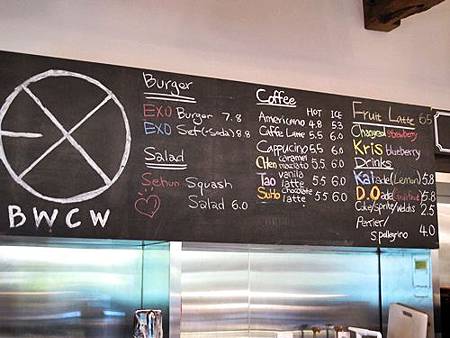 BWCW
Burger
EXO Burger 7.8
EXO Set(+Soda) 8.8
Salad
Sehun Squash
Salad 6.0
Coffee HOT ICE
Americano 4.8 5.3
Caffe Latte 5.5 6.0
Cappucino 5.5 6.0
Chen caramel
macciato 5.5 6.0
Tao vanila
latte 5.5 6.0
SuHo chocolate
latte 5.5 6.0
Fruit Latte 6.5
Chanyeol strawberry
Kris blueberry
Drinks
Kai ade(Lemon) 5.8
D.O ade 5.8
Coke/Sprite/welchs 2.5
Perrier/
s.pellegrino 4.0